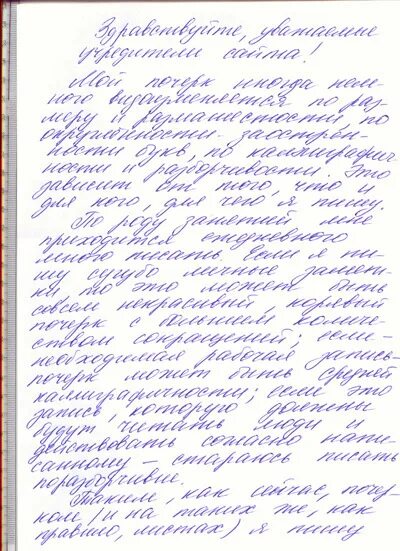 Здравствуйте, уважаемые
учредители сайта!
Мой почерк иногда нем-
ного видоизменяется по раз
меру и размашистости, по
округлённости - заострён-
ности букв, по каллиграфич
ности и разборчивости. Это
зависит от того, что и
для кого, для чего я пишу.
По роду занятий мне
приходится ежедневно
много писать. Если я пи-
шу сугубо личные замет-
ки то это может быть
совсем некрасивый корявый
почерк с большим количе-
ством сокращений; если -
необходимая рабочая запись -
почерк может быть средней
каллиграфичности; если это
запись, которую должны
будут читать люди и
действовать согласно напи-
санному – стараюсь писать
поразборчивие.
Таким, как сейчас, поче-
ком (и на таких же, как
правило, листах) я пишу